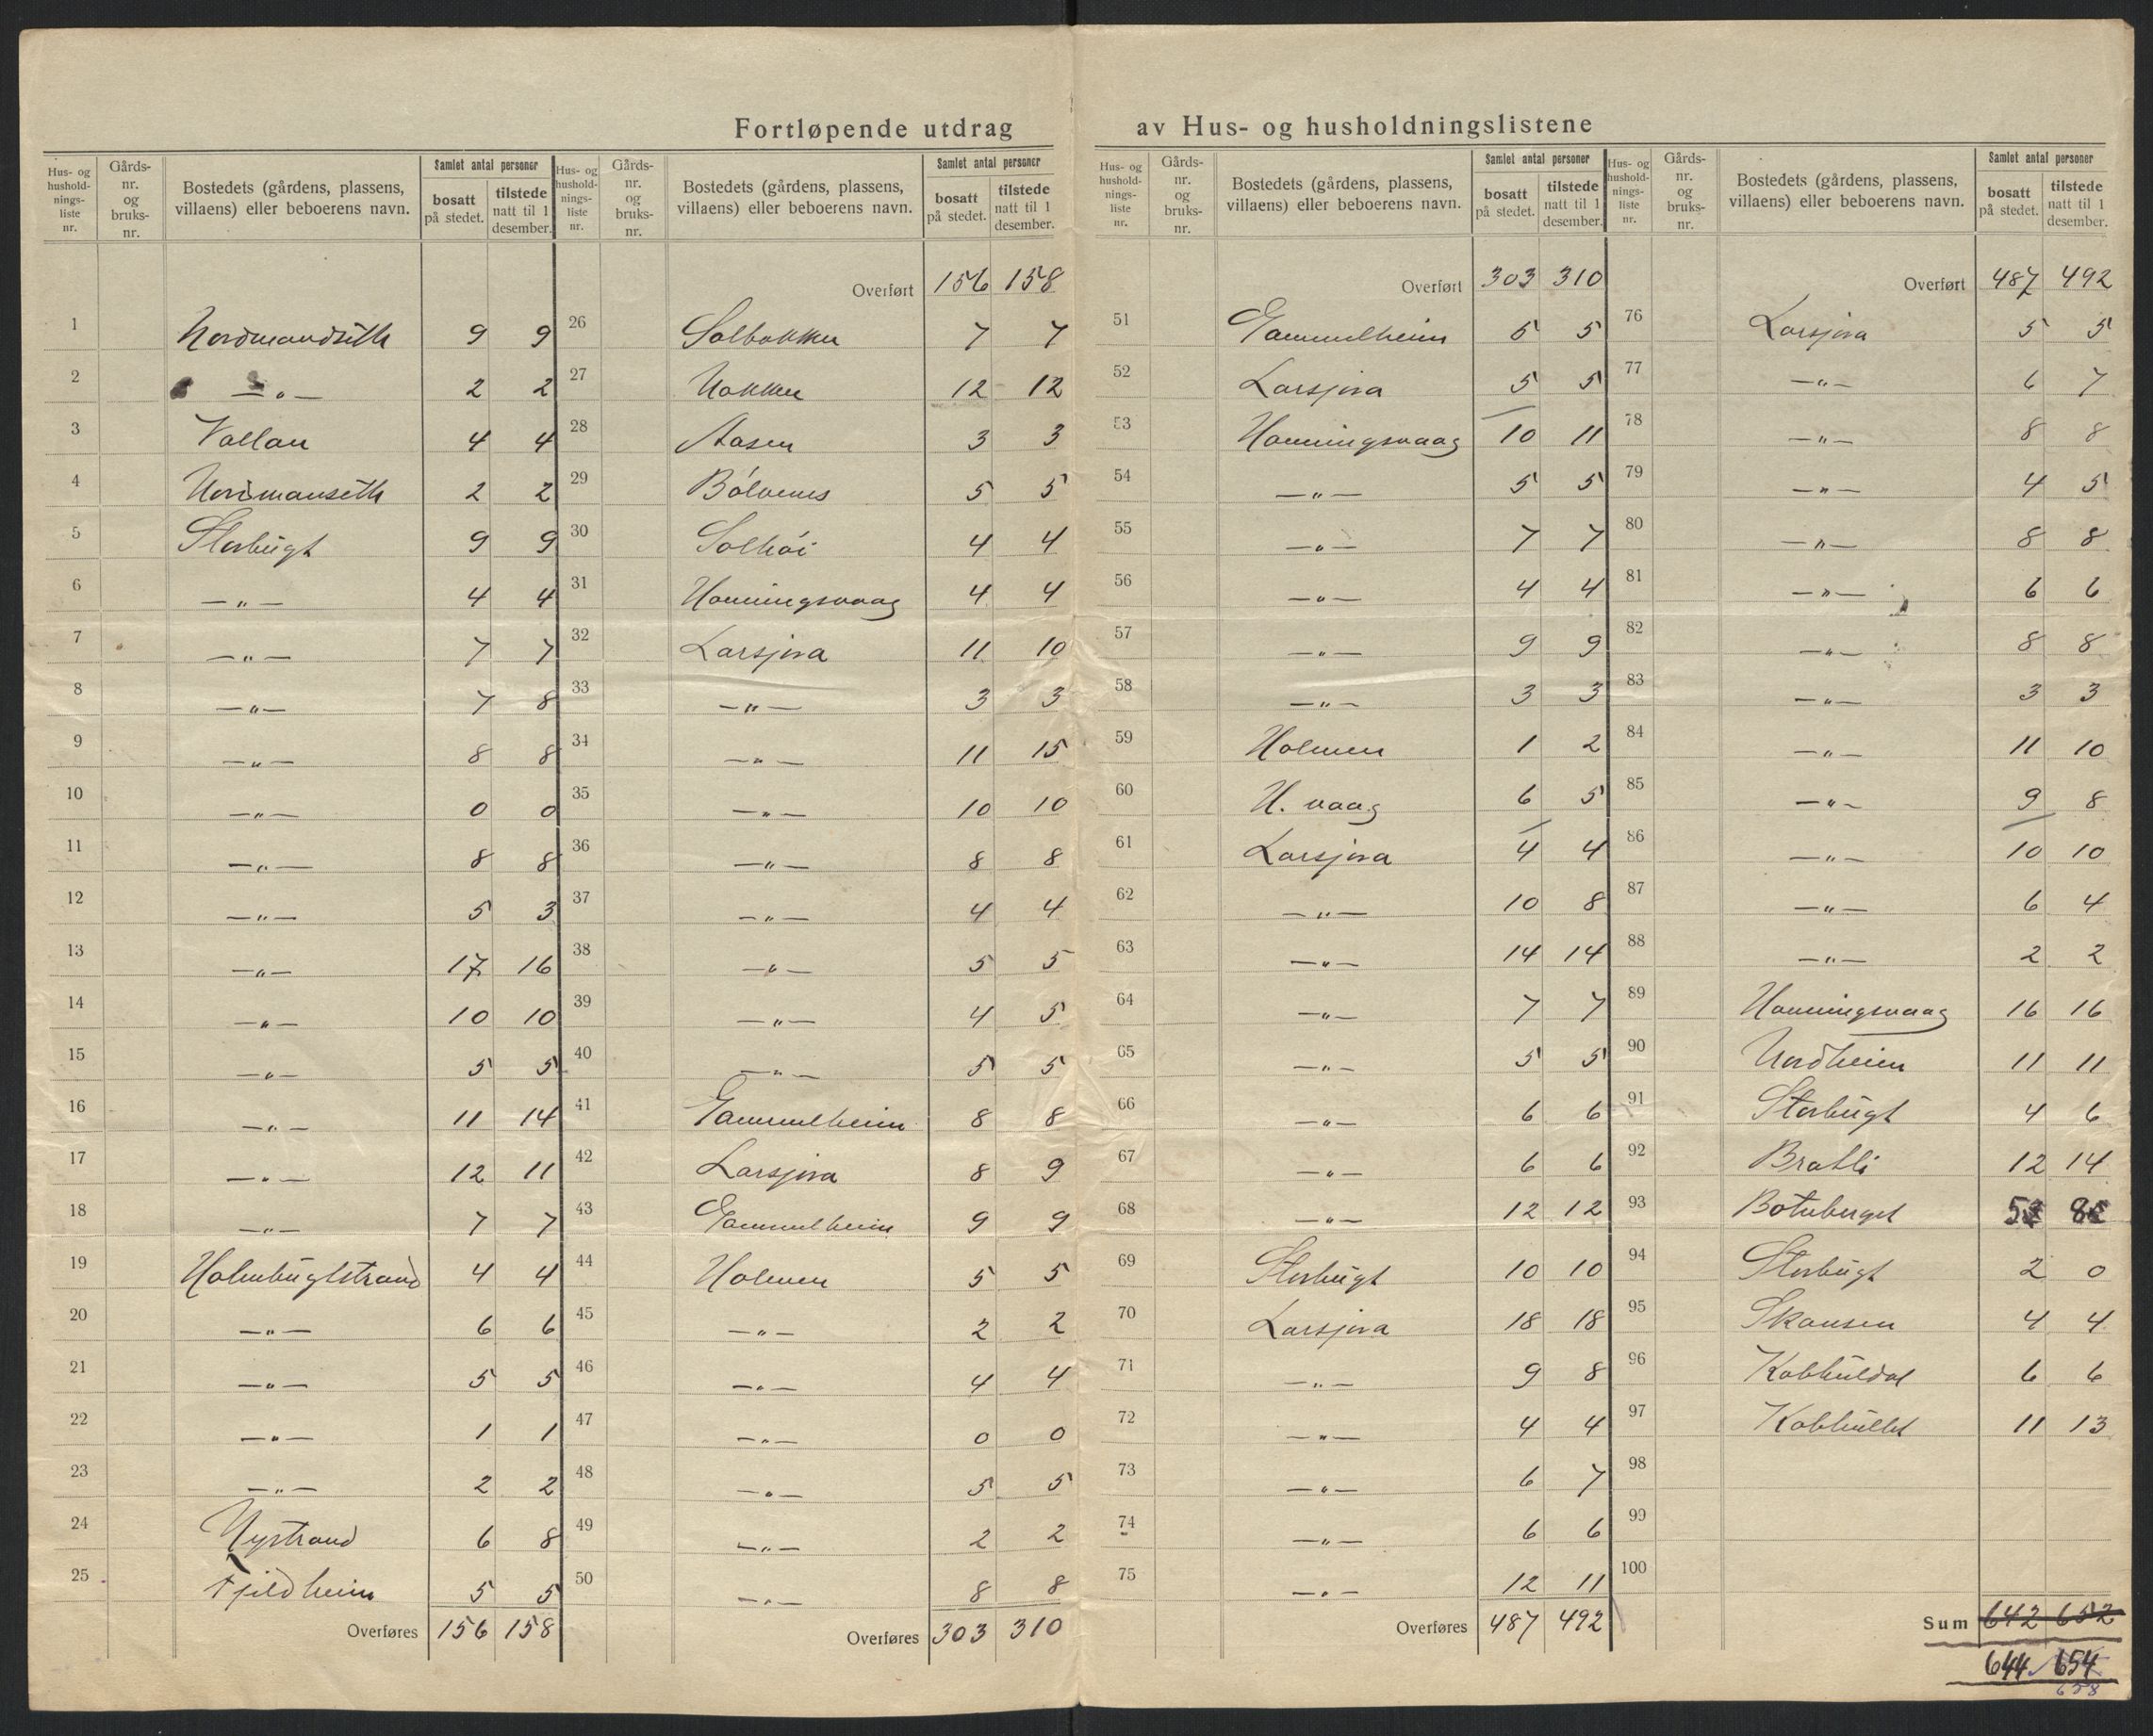 Fortløpende utdrag av Hus- og husholdningslistene
Hus- og husholdnings-liste nr. | Gårds-nr. og bruks-nr. | Bostedets (gårdens, plassens, villaens) eller beboerens navn. | Samlet antal personer bosatt på stedet. | tilstede natt til 1 desember.
1 Nordmandseth 9 9
2 —„— 2 2
3 Vollan 4 4
4 Nordmanseth 2 2
5 Storbugt 9 9
6 —„— 4 4
7 —„— 7 7
8 —„— 7 8
9 —„— 8 8
10 —„— 0 0
11 —„— 8 8
12 —„— 5 3
13 —„— 17 16
14 —„— 10 10
15 —„— 5 5
16 —„— 11 14
17 —„— 12 11
18 —„— 7 7
19 Holmbugtstrand 4 4
20 —„— 6 6
21 —„— 5 5
22 —„— 1 1
23 —„— 2 2
24 Nystrand 6 8
25 Fjeldheim 5 5
Overføres 156 158
Hus- og husholdnings-liste nr. | Gårds-nr. og bruks-nr. | Bostedets (gårdens, plassens, villaens) eller beboerens navn. | Samlet antal personer bosatt på stedet. | tilstede natt til 1 desember.
Overført 156 158
26 Solbakken 7 7
27 Nakken 12 12
28 Aasen 3 3
29 5 5
30 Solhöi 4 4
31 Honningsvaag 4 4
32 Larsjora 11 10
33 —„— 3 3
34 —„— 11 15
35 —„— 10 10
36 —„— 8 8
37 —„— 4 4
38 —„— 5 5
39 —„— 4 5
40 —„— 5 5
41 Gammelheim 8 8
42 Larsjora 8 9
43 Gammelheim 9 9
44 Holmen 5 5
45 —„— 2 2
46 —„— 4 4
47 —„— 0 0
48 —„— 5 5
49 —„— 2 2
50 —„— 8 8
Overføres 303 310
Hus- og husholdnings-liste nr. | Gårds-nr. og bruks-nr. | Bostedets (gårdens, plassens, villaens) eller beboerens navn. | Samlet antal personer bosatt på stedet. | tilstede natt til 1 desember.
Overført 303 310
51 Gammelheim 5 5
52 Larsjora 5 5
53 Honningsvaag 10 11
54 —„— 5 5
55 —„— 7 7
56 —„— 4 4
57 —„— 9 9
58 —„— 3 3
59 Holmen 1 2
60 H. vaag 6 5
61 Larsjora 4 4
62 —„— 10 8
63 —„— 14 14
64 —„— 7 7
65 —„— 5 5
66 —„— 6 6
67 —„— 6 6
68 —„— 12 12
69 Storbugt 10 10
70 Larsjora 18 18
71 —„— 9 8
72 —„— 4 4
73 —„— 6 7
74 —„— 6 6
75 —„— 12 11
Overføres 487 492
Hus- og husholdnings-liste nr. | Gårds-nr. og bruks-nr. | Bostedets (gårdens, plassens, villaens) eller beboerens navn. | Samlet antal personer bosatt på stedet. | tilstede natt til 1 desember.
Overført 487 492
76 Larsjora 5 5
77 —„— 6 7
78 —„— 8 8
79 —„— 4 5
80 —„— 8 8
81 —„— 6 6
82 —„— 8 8
83 —„— 3 3
84 —„— 11 10
85 —„— 9 8
86 —„— 10 10
87 —„— 6 4
88 —„— 2 2
89 Honningsvaag 16 16
90 Nordheim 11 11
91 Storbugt 4 6
92 Bratli 12 14
93 Botnberget 5 8
94 Storbugt 2 0
95 Skansen 4 4
96 Kobhuldal 6 6
97 Kobhullet 11 13
98
99
100
Sum 642 652
644 654
658